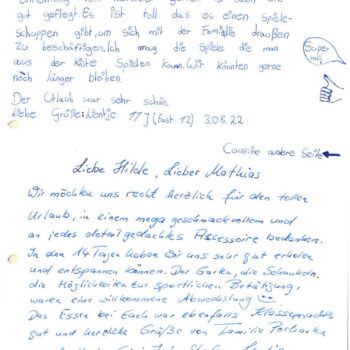 gut gepflegt. Es ist toll das es einen Spiele-
schuppen gibt, um sich mit der Familie draußen
zu beschäftigen. Ich mag die Spiele die man
aus der Kiste Spielen kann. Wir könnten gerne
noch länger bleiben.
Super
toll!
Der Urlaub war sehr schön.
liebe Grüße: 11J (fast 12) 3.08.22
Cousine andere Seite
Liebe Hilde, Lieber Mathias
Wir möchten uns recht herzlich für den tollen
Urlaub, in einem mega geschmackvollem und
an jedes detail gedachtes Accessoire bedanken.
In den 14 Tagen haben wir uns sehr gut erholen
und entspannen können. Der Garten, die Schaukeln,
die Möglichkeiten zur sportlichen Betätigung,
waren eine willkommene Abwechslung
Das Essen bei Euch war ebenfalls Klasse
gut und herzliche Grüße von Familie